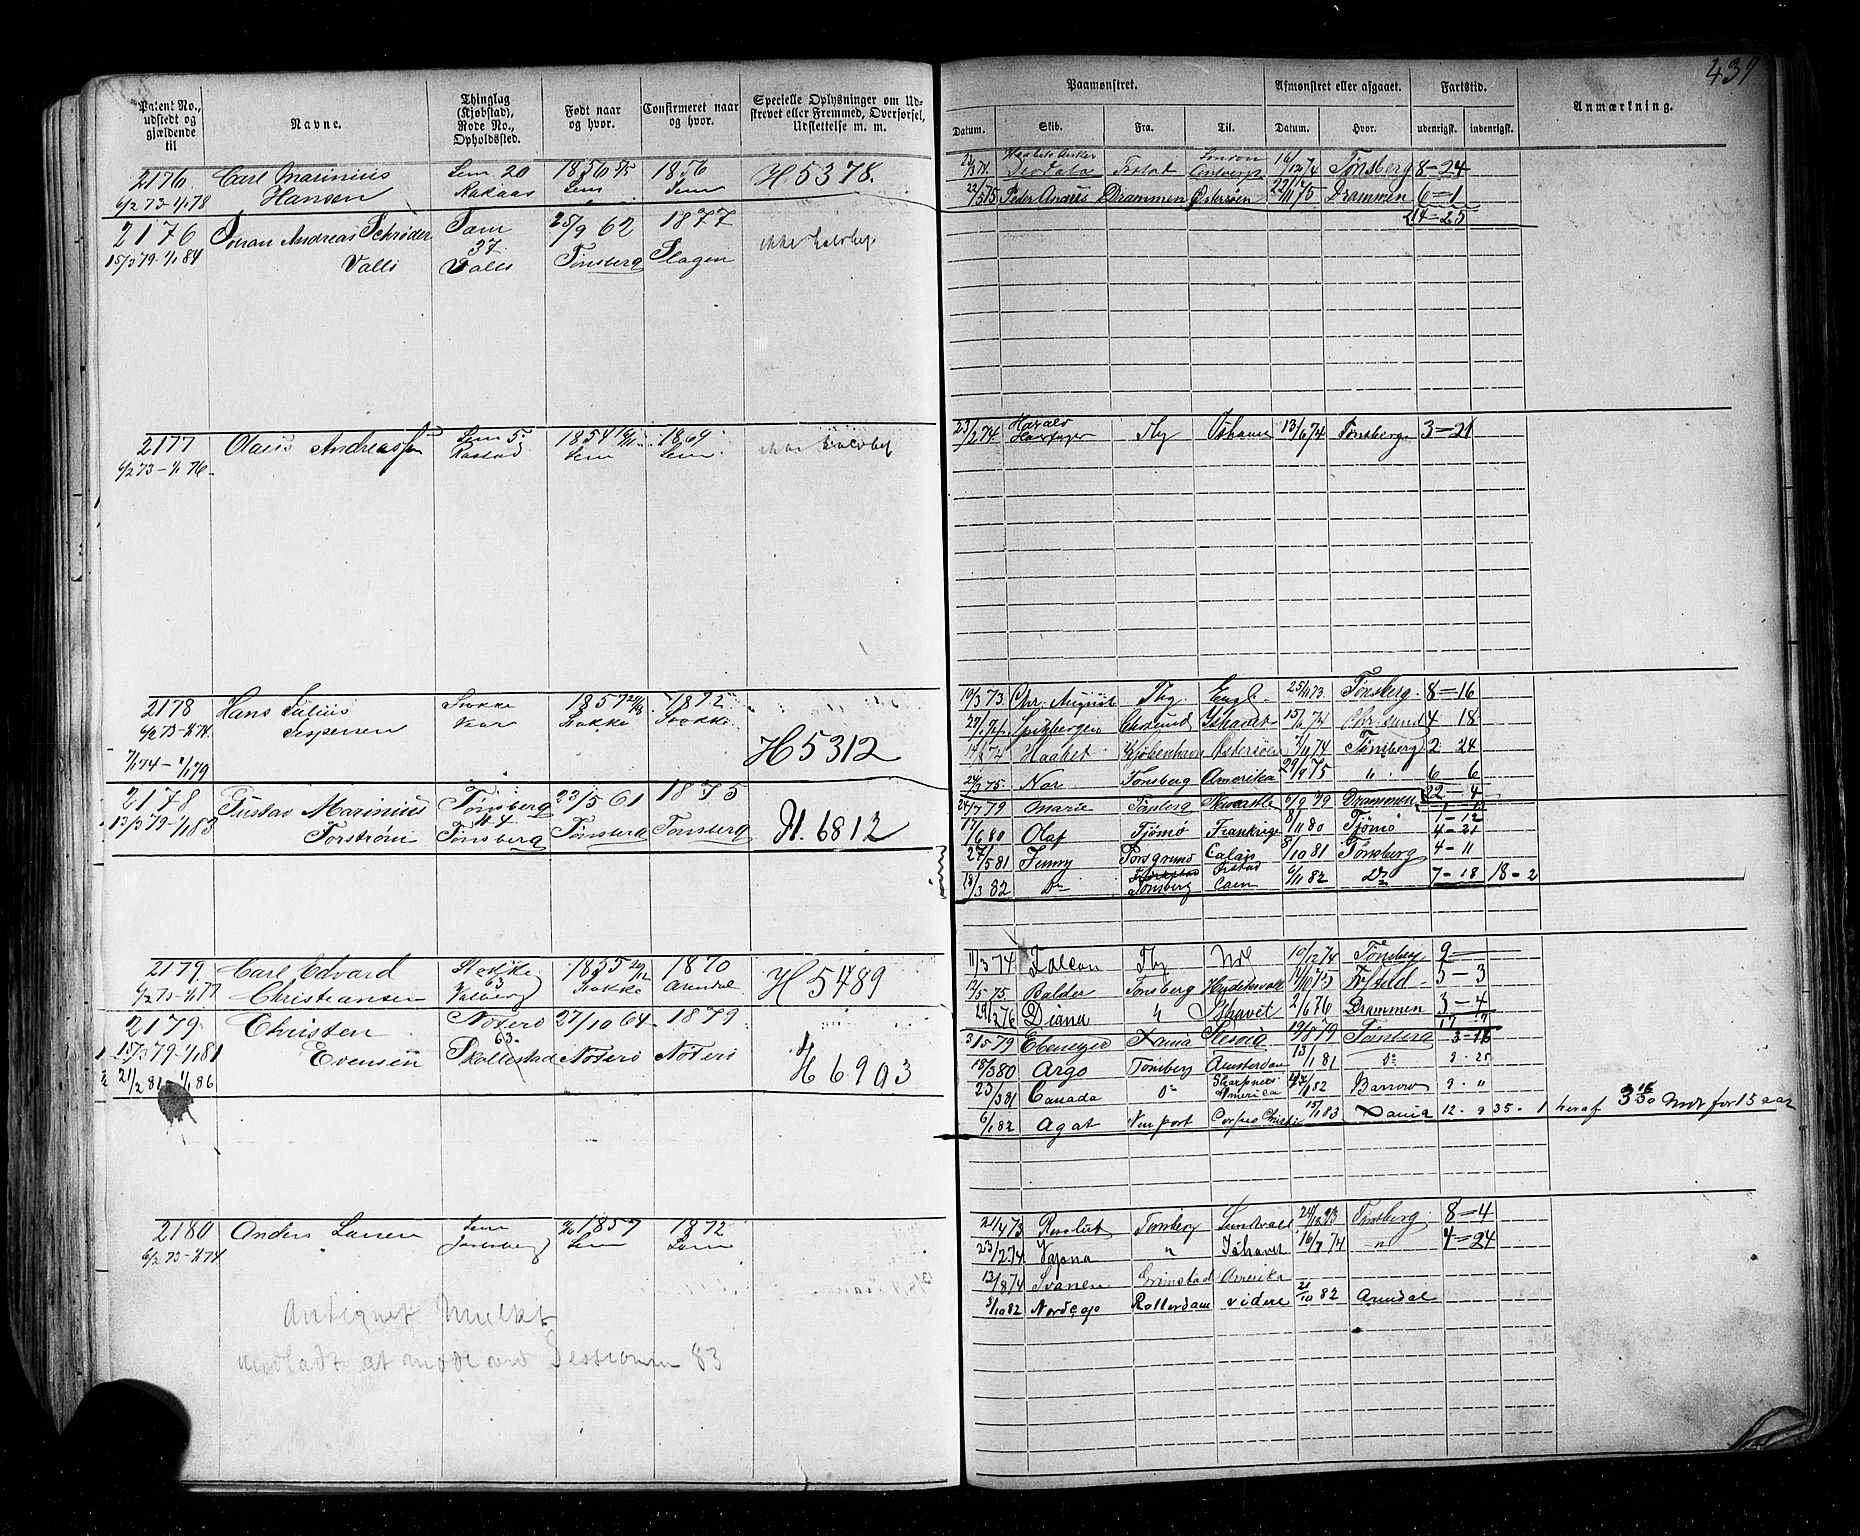 439
Patent No., udstedt og gjældende til
Navne.
Thinglag (Kjøbstad), Rode No., Opholdssted.
Født naar og hvor.
Confirmeret naar og hvor.
Specielle Oplysninger om Udskrevet eller Fremmed, Overførsel, Udslettelse m. m.
Paamønstret.
Afmønstret eller afgaaet.
Fartstid.
Anmærkning.
Datum. Skib. Fra. Til. Datum. Hvor. udenrigsk. indenrigsk.
2176 Carl Marinius Sem 20 1856 1876 H 5378.
6/2 73 - 1/1 78 Hansen Rakaas Sem Sem
London
Deodata Frstad Antwerp 16/12 74 Tønsberg 8-24
22/5 75 Peder Anders Drammen Østersøen 22/11 75 Drammen 6=1
2176 Johan Andreas Schrøder Sem 25/9 62 1877
15/3 79 - 1/1 84 Vallø 37 Vallø Tønsberg Slagen
2177 Olaus Andreassen Sem 5 1854 1869
6/2 73 - 1/1 76 Rastad Sem Sem
23/2 74 Harald Haarfager Tbg Ishavet 13/6 74 Tønsberg 3=21
2178 Hans Julius Stokke 1857 1872
6/2 73 - 1/1 74 Jespersen Stokke Stokke
1/1 74 - 1/1 79 H 5312
19/3 73 Chr. August Tbg Engl. 25/11 73 Tønsberg 8=16
Spitzbergen Chrsund Ishavet 15/6 74 Chr.sund 4 18
Haabet Kjøbenhavn Østersøen Tønsberg 2 24
24/3 75 Nor Tønsberg Amerika 29/9 75 " 6 6
22-4
2178 Gustav Marinius Tønsberg 23/5 61 1875
13/3 79 - 1/1 83 Torstrøm H 4 Tønsberg Tønsberg Tønsberg H. 6812
24/7 79 Marie Tønsberg Newcastle 6/9 79 Drammen 1-12
17/6 80 Olaf Tjømø Frankrige 8/11 80 Tjømø 4-21
27/5 81 Jenny Porsgrund Calais 8/10 81 Tønsberg 4-11
18/3 82 Do Tønsberg Caen 6/11 82 Do 7-18 18-2
2179 Carl Edvard Stokke 1855 1870 H 5489
6/2 73 - 1/1 77 Christiansen 63 Valberg Stokke Arendal
11/3 74 Falcon Tbg Nol 19/12 74 Tønsberg 9=
12/5 75 Balder Tønsberg Hudiksvall 14/10 75 Frstad 5-3
29/2 76 Diana " Ishavet 2/6 76 Drammen 3-4
2179 Christen Nøterø 27/10 64 1879
15/3 79 - 1/1 81 Evensen 63 Skallestad Nøterø Nøterø
21/2 81 - 1/1 86 H 6903
3/5 79 Ebenezer Xania 19/8 79 Tønsberg 3-16
18/3 80 Argo Tønsberg Amsterdam 15/1 81 Do 9-25
23/3 81 Canada Do Amerika Barrow 9-"
6/1 82 Agat Newport Corpus Christi 15/1 83 Xania 12-9 35-1 heraf Mdr for 15 aar
2180 Anders Larsen Sem 1857 1872
6/2 73 - 1/1 74 Jarlsberg Sem Sem
21/4 73 Resolut Tønsberg Sundsvall Tønsberg 8=4
23/2 74 Vapna " Ishavet 16/7 74 " 4=24
13/8 74 Svanen Grimstad Amerika
5/10 82 Nordcap Rotterdam videre 21/10 82 Arendal
Antegnet Mulkt
undladt at møde ved Sessionen 83